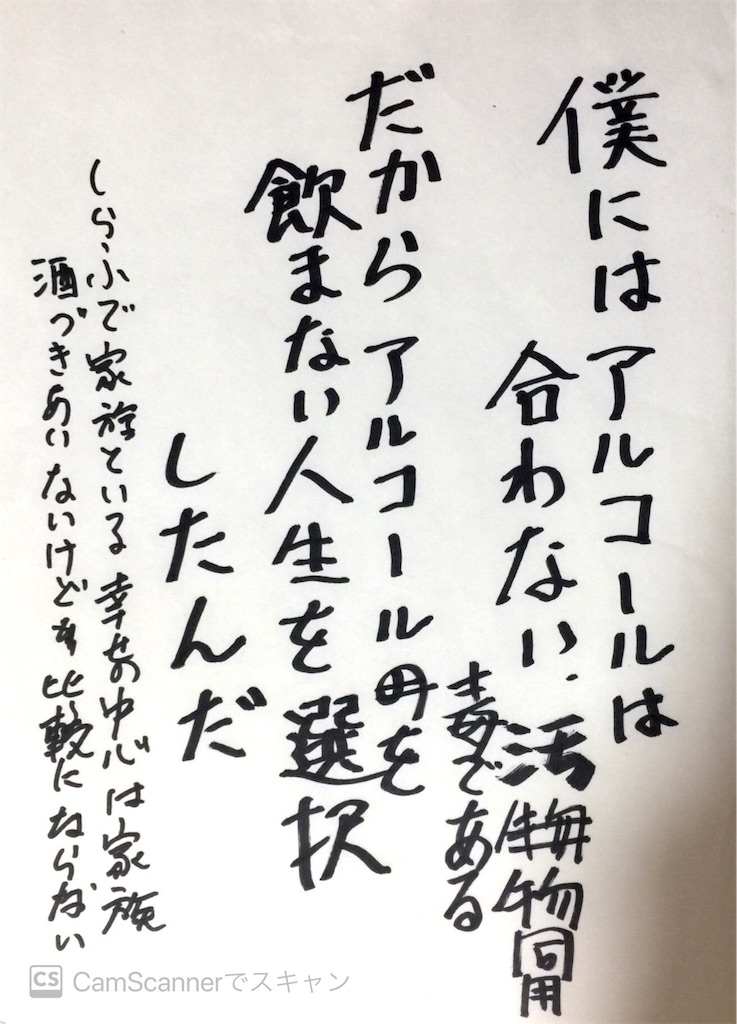 僕にはアルコールは
合わない.
毒である
だからアルコールを
飲まない人生を選択
したんだ
しらふで家族といる幸せの中心は家族
酒づきあいないけども比較にならない
CS CamScannerでスキャン